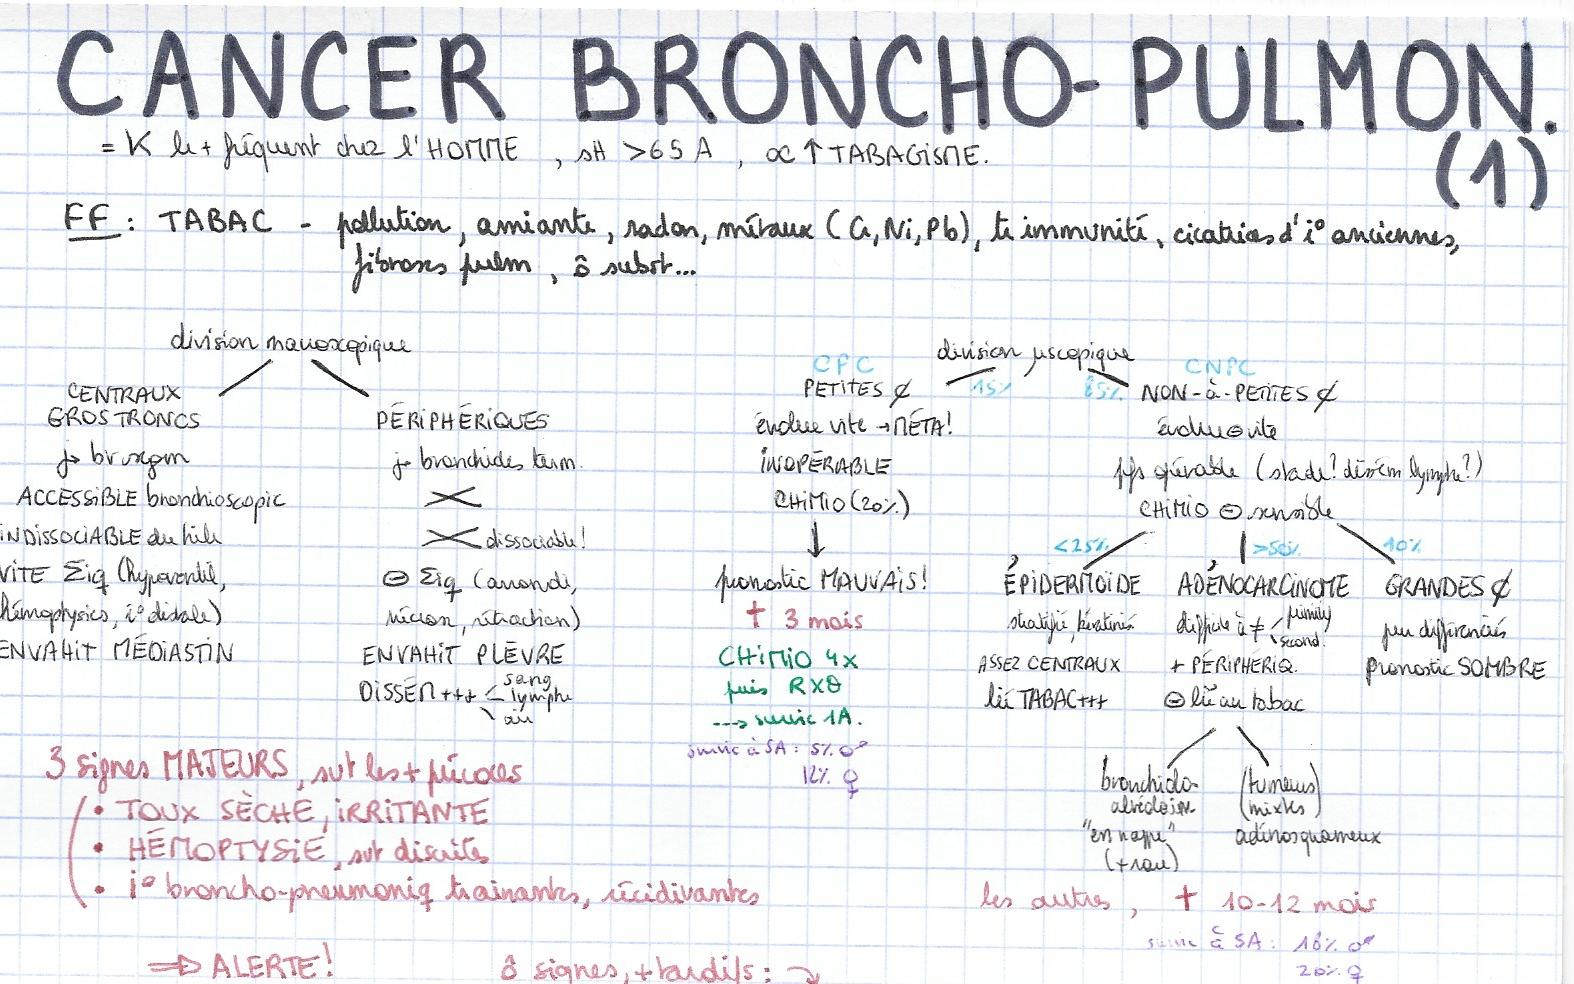 CANCER BRONCHO-PULMON.
(1)
= K le + fréquent chez l'HOMME , st >65 A , ∝ ↑ TABAGISME.
FF : TABAC - pollution, amiante, radon, métaux (Cr, Ni, Pb), tr immunité, cicatrices d'i° anciennes,
fibroses pulm, ô subst...
division macroscopique
CENTRAUX
GROS TRONCS
j→ br segm
ACCESSIBLE bronchioscopie
INDISSOCIABLE du hile
VITE Σiq (hypoventil,
hémoptysies, i° distale)
ENVAHIT MÉDIASTIN
PÉRIPHÉRIQUES
j→ bronchioles term.
dissociable!
⊖ Σiq (arrondi,
nécrose, rétraction)
ENVAHIT PLÈVRE
DISSÉM +++ sang
lymphe
air
division µscopique
CPC 15%
PETITES ¢
évolue vite → MÉTA!
INOPÉRABLE
CHIMIO (20%)
pronostic MAUVAIS!
† 3 mois
CHIMIO 4x
puis RXθ
---> survie 1A.
survie à 5A : 5% ♂
12% ♀
85% CNPC
NON-à-PETITES ¢
évolue ⊖ vite
pfs opérable (stade? dissém lymphe?)
CHIMIO ⊖ sensible
<25% >50% 10%
ÉPIDERMOÏDE
stratifié, kératinisé
ASSEZ CENTRAUX
lié TABAC+++
ADÉNOCARCINOME
difficile à ≠ primitif
second.
+ PÉRIPHÉRIQ.
⊖ lié au tabac
GRANDES ¢
peu différenciés
pronostic SOMBRE
bronchiolo-
alvéolaire
"en nappe"
(+ rare)
(tumeurs)
(mixtes)
adénosquameux
les autres, † 10-12 mois
survie à 5A : 18% ♂
20% ♀
3 signes MAJEURS, svt les + précoces
• TOUX SÈCHE, IRRITANTE
• HÉMOPTYSIE, svt discrètes
• i° broncho-pneumoniq trainantes, récidivantes
⇒ ALERTE!
ô signes, + tardifs :